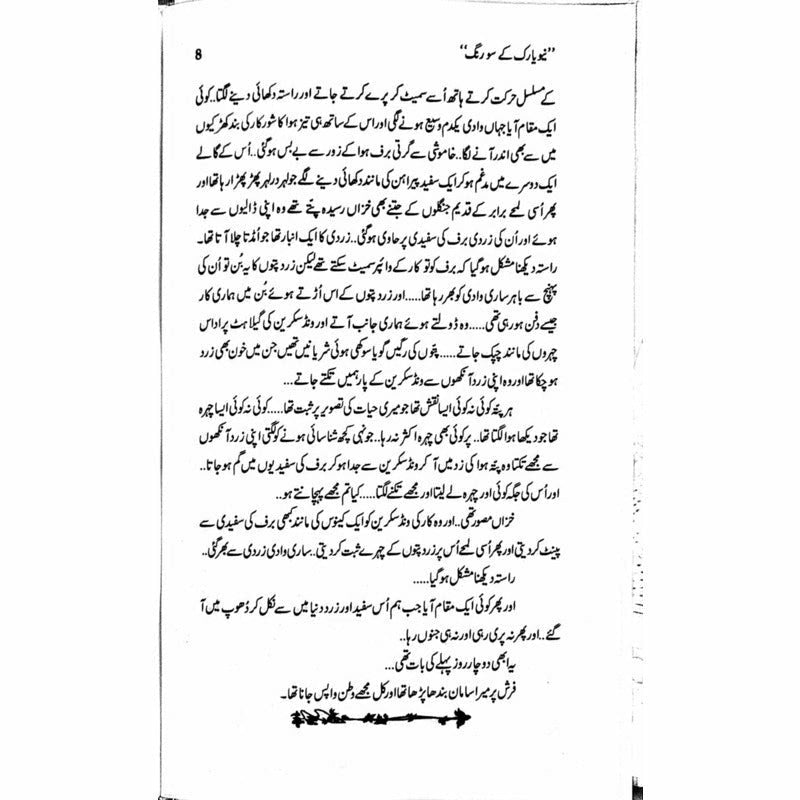 ’’نیویارک کے سو رنگ‘‘ 8
کے مسلسل حرکت کرتے ہاتھ اُسے سمیٹ کر پرے کرتے جاتے اور راستہ دکھائی دینے لگتا.. کوئی
ایک مقام آیا جہاں وادی یکدم وسیع ہونے لگی اور اس کے ساتھ ہی تیز ہوا کا شور کار کی بند کھڑکیوں
میں سے بھی اندر آنے لگا.. خاموشی سے گرتی برف ہوا کے زور سے بے بس ہو گئی.. اُس کے گالے
ایک دوسرے میں مدغم ہو کر ایک سفید پیراہن کی مانند دکھائی دینے لگے جو لہر در لہر پھڑ پھڑا رہا تھا اور
پھر اُسی لمحے برابر کے قدیم جنگلوں کے جتنے بھی خزاں رسیدہ پتّے تھے وہ اپنی ڈالیوں سے جدا
ہوئے اور اُن کی زردی برف کی سفیدی پر حاوی ہو گئی.. زردی کا ایک انبار تھا جو اُمڈتا چلا آتا تھا۔
راستہ دیکھنا مشکل ہو گیا کہ برف کو تو کار کے وائپر سمیٹ سکتے تھے لیکن زرد پتوں کا یہ بُن تو اُن کی
پہنچ سے باہر ساری وادی کو بھر رہا تھا..... اور زرد پتوں کے اس اُڑتے ہوئے بُن میں ہماری کار
جیسے دفن ہو رہی تھی..... وہ ڈولتے ہوئے ہماری جانب آتے اور ونڈ سکرین کی گیلاہٹ پر اداس
چہروں کی مانند چپک جاتے..... پتّوں کی رگیں گویا سوکھی ہوئی شریانیں تھیں جن میں خون بھی زرد
ہو چکا تھا اور وہ اپنی زرد آنکھوں سے ونڈ سکرین کے پار ہمیں تکتے جاتے...
ہر پتّہ کوئی نہ کوئی ایسا نقش تھا جو میری حیات کی تصویر پر ثبت تھا..... کوئی نہ کوئی ایسا چہرہ
تھا جو دیکھا ہوا لگتا تھا.. پر کوئی بھی چہرہ اکثر نہ رہا.. جونہی کچھ شناسائی ہونے کو لگتی اپنی زرد آنکھوں
سے مجھے تکتا وہ پتّہ ہوا کی زد میں آ کر ونڈ سکرین سے جدا ہو کر برف کی سفیدیوں میں گم ہو جاتا..
اور اُس کی جگہ کوئی اور چہرہ لے لیتا اور مجھے تکنے لگتا..... کیا تم مجھے پہچانتے ہو..
خزاں مصور تھی.. اور وہ کار کی ونڈ سکرین کو ایک کینوس کی مانند کبھی برف کی سفیدی سے
پینٹ کر دیتی اور پھر اُسی لمحے اُس پر زرد پتوں کے چہرے ثبت کر دیتی.. ساری وادی زردی سے بھر گئی..
راستہ دیکھنا مشکل ہو گیا.....
اور پھر کوئی ایک مقام آیا جب ہم اُس سفید اور زرد دنیا میں سے نکل کر دُھوپ میں آ
گئے.. اور پھر نہ پری رہی اور نہ ہی جنوں رہا..
یہ ابھی دو چار روز پہلے کی بات تھی...
فرش پر میرا سامان بندھا پڑھا تھا اور کل مجھے وطن واپس جانا تھا۔